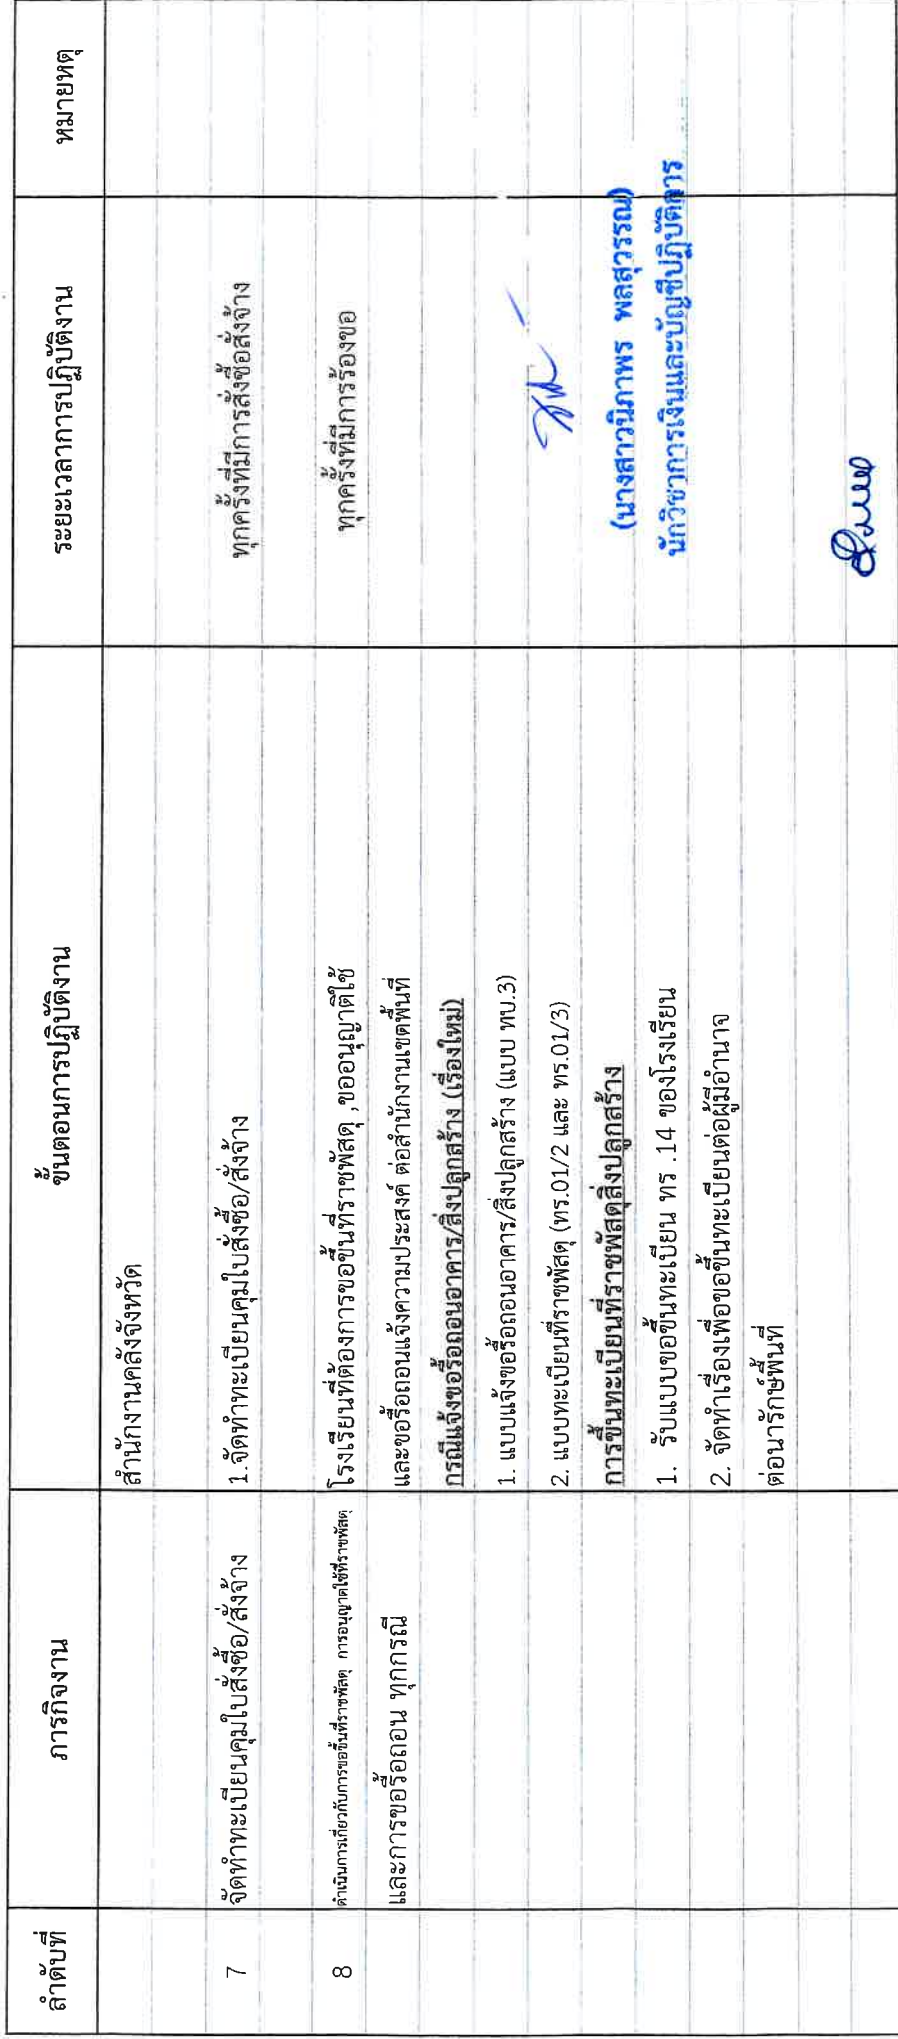 ลำดับที่ ภารกิจงาน ขั้นตอนการปฏิบัติงาน ระยะเวลาการปฏิบัติงาน หมายเหตุ
สำนักงานคลังจังหวัด
7 จัดทำทะเบียนคุมใบสั่งซื้อ/สั่งจ้าง 1.จัดทำทะเบียนคุมใบสั่งซื้อ/สั่งจ้าง ทุกครั้งที่มีการสั่งซื้อสั่งจ้าง
8 ดำเนินการเกี่ยวกับการขอขึ้นที่ราชพัสดุ การอนุญาตใช้ที่ราชพัสดุ โรงเรียนที่ต้องการขอขึ้นที่ราชพัสดุ ,ขออนุญาติใช้ ทุกครั้งที่มีการร้องขอ
และการขอรื้อถอน ทุกกรณี และขอรื้อถอนแจ้งความประสงค์ ต่อสำนักงานเขตพื้นที่
กรณีแจ้งขอรื้อถอนอาคาร/สิ่งปลูกสร้าง (เรื่องใหม่)
1. แบบแจ้งขอรื้อถอนอาคาร/สิ่งปลูกสร้าง (แบบ ทบ.3)
2. แบบทะเบียนที่ราชพัสดุ (ทร.01/2 และ ทร.01/3)
การขึ้นทะเบียนที่ราชพัสดุสิ่งปลูกสร้าง (นางสาวนิภาพร พลสุวรรณ)
1. รับแบบขอขึ้นทะเบียน ทร .14 ของโรงเรียน นักวิชาการเงินและบัญชีปฏิบัติการ
2. จัดทำเรื่องเพื่อขอขึ้นทะเบียนต่อผู้มีอำนาจ
ต่อนารักษ์พื้นที่